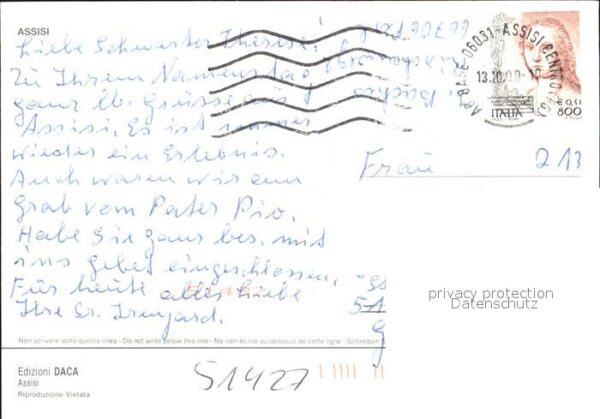 ASSISI
Liebe Schwester Therese!
Zu Ihrem Namenstag
ganz lb. Grüsse aus
Assisi. Es ist immer
wieder ein Erlebnis.
Auch waren wir am
Grab vom Pater Pio.
Habe Sie ganz bes. mit
ins Gebet eingeschlossen.
Für heute alles liebe
Ihre Sr. Irmgard.
06031-ASSISI CENTRO (PG)
13.10.00
ITALIA
€ 0,41
800
Frau
213
privacy protection
Datenschutz
Non scrivere sotto questa linea - Do not write below this line - Ne rien écrire au-dessous de cette ligne - Schreiben S
Edizioni DACA
Assisi
Riproduzione Vietata
51427